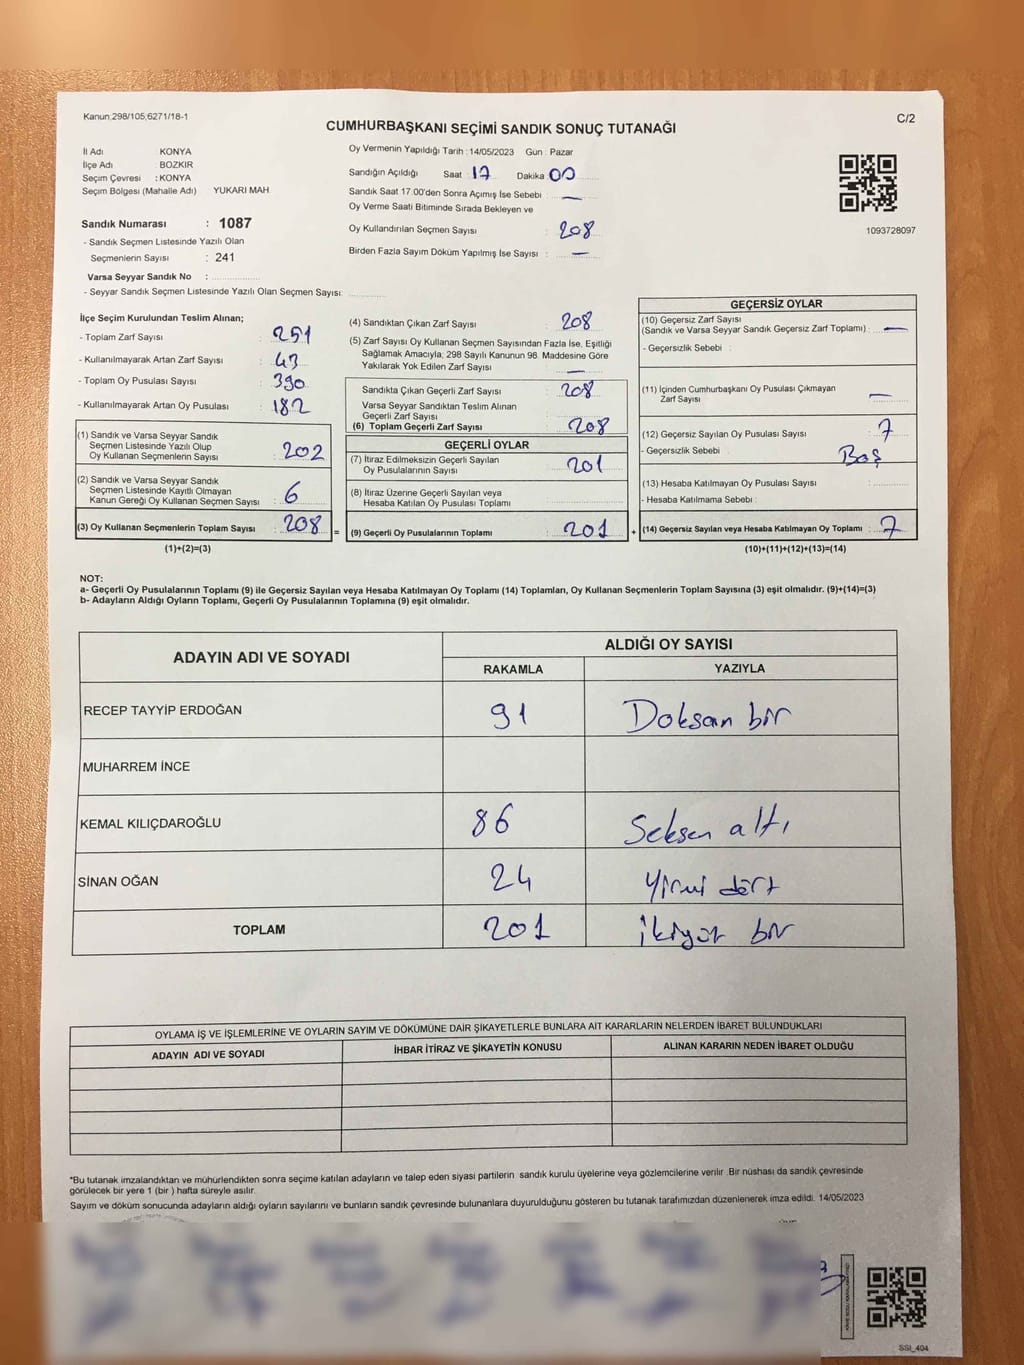 Kanun:298/105;6271/18-1
C/2
CUMHURBAŞKANI SEÇİMİ SANDIK SONUÇ TUTANAĞI
İl Adı KONYA
İlçe Adı BOZKIR
Seçim Çevresi : KONYA
Seçim Bölgesi (Mahalle Adı) YUKARI MAH.
Sandık Numarası : 1087
- Sandık Seçmen Listesinde Yazılı Olan
Seçmenlerin Sayısı : 241
Varsa Seyyar Sandık No :
- Seyyar Sandık Seçmen Listesinde Yazılı Olan Seçmen Sayısı:
Oy Vermenin Yapıldığı Tarih : 14/05/2023 Gün : Pazar
Sandığın Açıldığı Saat 17 Dakika 00
Sandık Saat 17.00'den Sonra Açımış İse Sebebi : —
Oy Verme Saati Bitiminde Sırada Bekleyen ve
Oy Kullandırılan Seçmen Sayısı : 208
Birden Fazla Sayım Döküm Yapılmış İse Sayısı : —
1093728097
İlçe Seçim Kurulundan Teslim Alınan;
- Toplam Zarf Sayısı : 251
- Kullanılmayarak Artan Zarf Sayısı : 43
- Toplam Oy Pusulası Sayısı : 390
- Kullanılmayarak Artan Oy Pusulası : 182
(1) Sandık ve Varsa Seyyar Sandık
Seçmen Listesinde Yazılı Olup
Oy Kullanan Seçmenlerin Sayısı : 202
(2) Sandık ve Varsa Seyyar Sandık
Seçmen Listesinde Kayıtlı Olmayan
Kanun Gereği Oy Kullanan Seçmen Sayısı : 6
(3) Oy Kullanan Seçmenlerin Toplam Sayısı : 208
(1)+(2)=(3)
=
(4) Sandıktan Çıkan Zarf Sayısı : 208
(5) Zarf Sayısı Oy Kullanan Seçmen Sayısından Fazla İse, Eşitliği
Sağlamak Amacıyla; 298 Sayılı Kanunun 98. Maddesine Göre
Yakılarak Yok Edilen Zarf Sayısı : —
Sandıkta Çıkan Geçerli Zarf Sayısı : 208
Varsa Seyyar Sandıktan Teslim Alınan
Geçerli Zarf Sayısı :
(6) Toplam Geçerli Zarf Sayısı : 208
GEÇERLİ OYLAR
(7) İtiraz Edilmeksizin Geçerli Sayılan
Oy Pusulalarının Sayısı : 201
(8) İtiraz Üzerine Geçerli Sayılan veya
Hesaba Katılan Oy Pusulası Toplamı :
(9) Geçerli Oy Pusulalarının Toplamı : 201
+
GEÇERSİZ OYLAR
(10) Geçersiz Zarf Sayısı
(Sandık ve Varsa Seyyar Sandık Geçersiz Zarf Toplamı) : —
- Geçersizlik Sebebi :
(11) İçinden Cumhurbaşkanı Oy Pusulası Çıkmayan
Zarf Sayısı : —
(12) Geçersiz Sayılan Oy Pusulası Sayısı : 7
- Geçersizlik Sebebi : Boş
(13) Hesaba Katılmayan Oy Pusulası Sayısı :
- Hesaba Katılmama Sebebi :
(14) Geçersiz Sayılan veya Hesaba Katılmayan Oy Toplamı : 7
(10)+(11)+(12)+(13)=(14)
NOT:
a- Geçerli Oy Pusulalarının Toplamı (9) ile Geçersiz Sayılan veya Hesaba Katılmayan Oy Toplamı (14) Toplamları, Oy Kullanan Seçmenlerin Toplam Sayısına (3) eşit olmalıdır. (9)+(14)=(3)
b- Adayların Aldığı Oyların Toplamı, Geçerli Oy Pusulalarının Toplamına (9) eşit olmalıdır.
ADAYIN ADI VE SOYADI
ALDIĞI OY SAYISI
RAKAMLA YAZIYLA
RECEP TAYYİP ERDOĞAN 91 Doksan bir
MUHARREM İNCE
KEMAL KILIÇDAROĞLU 86 Seksen altı
SİNAN OĞAN 24 Yirmi dört
TOPLAM 201 İkiyüz bir
OYLAMA İŞ VE İŞLEMLERİNE VE OYLARIN SAYIM VE DÖKÜMÜNE DAİR ŞİKAYETLERLE BUNLARA AİT KARARLARIN NELERDEN İBARET BULUNDUKLARI
ADAYIN ADI VE SOYADI İHBAR İTİRAZ VE ŞİKAYETİN KONUSU ALINAN KARARIN NEDEN İBARET OLDUĞU
*Bu tutanak imzalandıktan ve mühürlendikten sonra seçime katılan adayların ve talep eden siyasi partilerin sandık kurulu üyelerine veya gözlemcilerine verilir. Bir nüshası da sandık çevresinde
görülecek bir yere 1 (bir ) hafta süreyle asılır.
Sayım ve döküm sonucunda adayların aldığı oyların sayılarını ve bunların sandık çevresinde bulunanlara duyurulduğunu gösteren bu tutanak tarafımızdan düzenlenerek imza edildi. 14/05/2023
SSİ_404